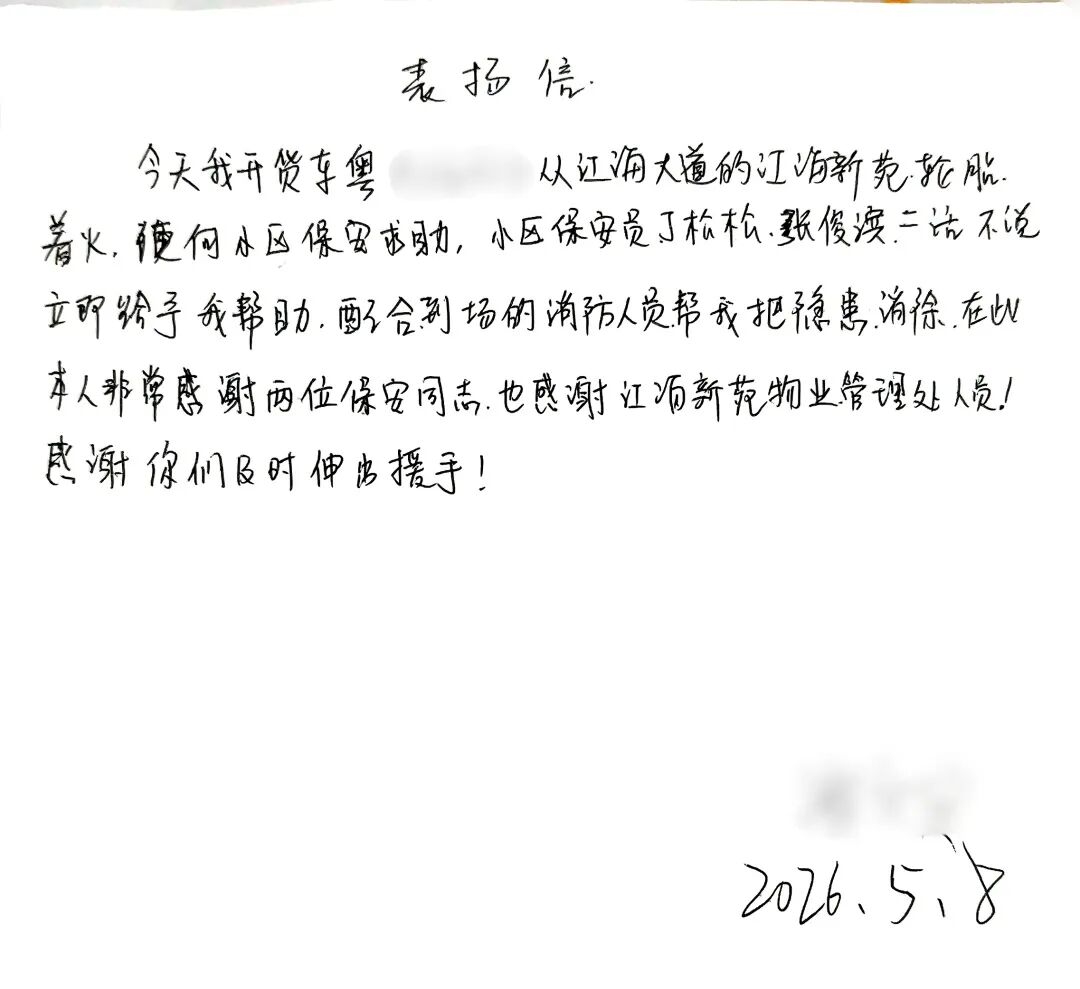 表扬信.
今天我开货车粤 从江海大道的江海新苑.轮胎.
着火,便向小区保安求助,小区保安员丁松松.张俊滨.二话不说
立即给予我帮助.配合到场的消防人员帮我把隐患.消除.在此
本人非常感谢两位保安同志.也感谢江海新苑物业管理处人员!
感谢你们及时伸出援手!
2026、5、8